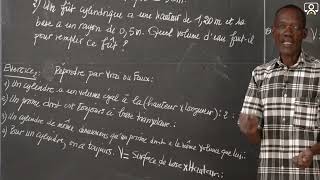 2) Un fût cylindrique a une hauteur de 1,20 m et sa
base a un rayon de 0,5m. Quel volume d'eau faut-il
pour remplir ce fût ?
Exercice: Répondre par Vrai ou Faux:
1) Un cylindre a un volume égal à la (hauteur x longueur): 2 :
2) Un prisme droit est toujours à base triangulaire.
3) Un cylindre de même dimensions qu'un prisme droit a le même volume que lui:
4) Pour un cylindre, on a toujours: V= Surface de base x Hauteur: